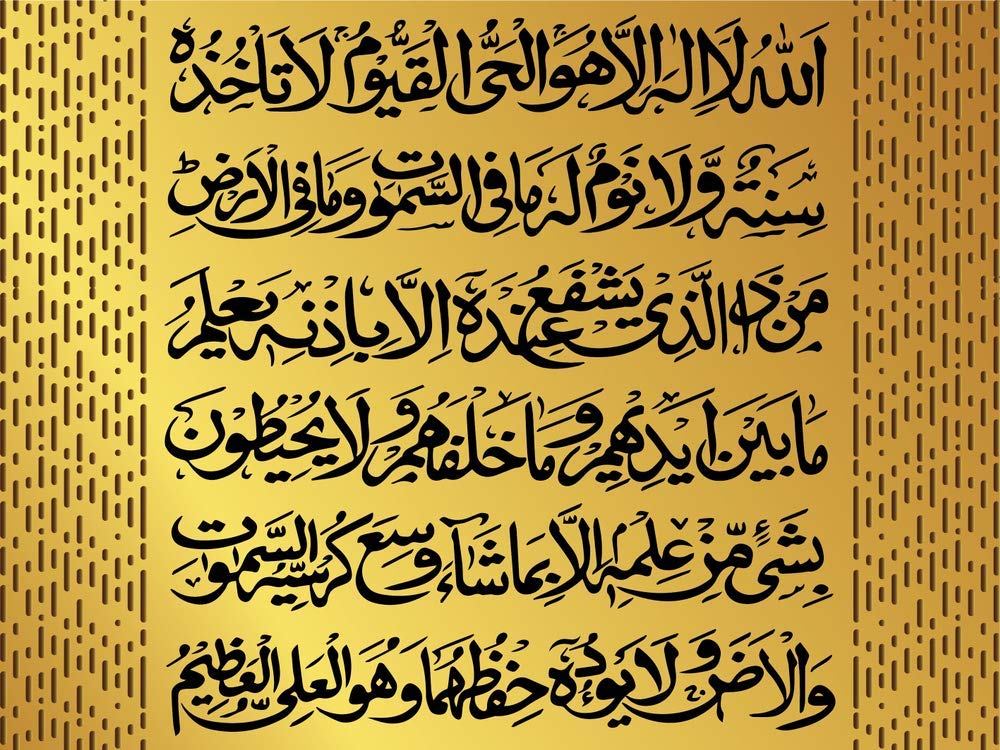 اَللّٰهُ لَا اِلٰهَ اِلَّا هُوَ الْحَیُّ الْقَیُّوْمُ لَا تَاْخُذُهٗ
سِنَةٌ وَّلَا نَوْمٌ لَهٗ مَا فِی السَّمٰوٰتِ وَمَا فِی الْاَرْضِ ؕ
مَنْ ذَا الَّذِیْ یَشْفَعُ عِنْدَهٗۤ اِلَّا بِاِذْنِهٖ یَعْلَمُ
مَا بَیْنَ اَیْدِیْهِمْ وَمَا خَلْفَهُمْ وَلَا یُحِیْطُوْنَ
بِشَیْءٍ مِّنْ عِلْمِهٖۤ اِلَّا بِمَا شَآءَ وَسِعَ كُرْسِیُّهُ السَّمٰوٰتِ
وَالْاَرْضَ وَلَا یَـُٔوْدُهٗ حِفْظُهُمَا وَهُوَ الْعَلِیُّ الْعَظِیْمُ